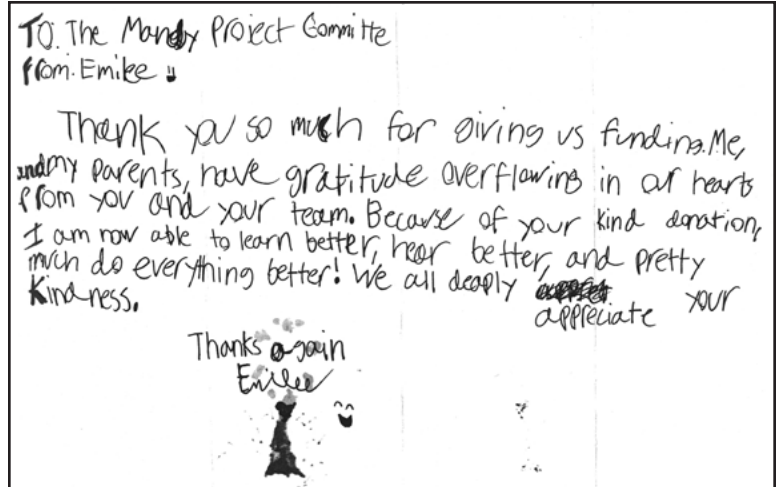 TO: The Mandy Project Committe
from: Emilee
Thank you so much for giving us funding. Me,
and my parents, have gratitude overflowing in our hearts
from you and your team. Because of your kind donation,
I am now able to learn better, hear better, and pretty
much do everything better! We all deaply appreciate your
kindness.
Thanks again
Emilee